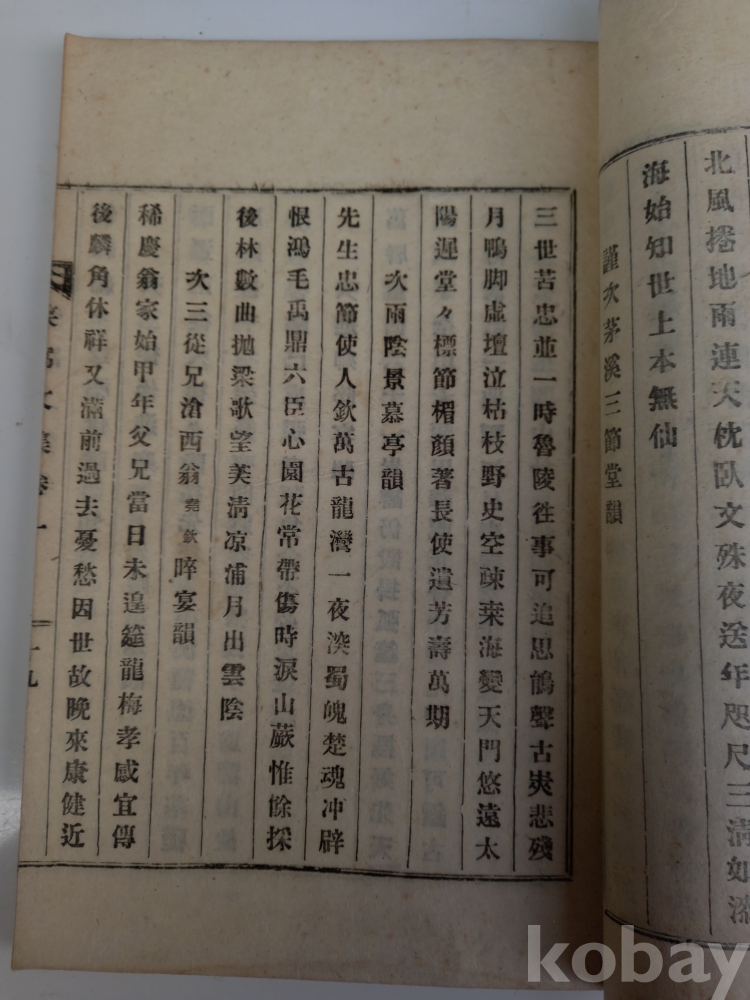 北風捲地雨連天枕臥文殊夜送年咫尺三淸如漲
海始知世上本無仙
謹次茅溪三節堂韻
三世苦忠並一時魯陵徃事可追思鵑聲古峽悲殘
月鴨脚虛壇泣枯枝野史空疎桒海變天門悠遠太
陽遲堂々標節楣顏著長使遺芳壽萬期
次雨陰景慕亭韻
先生忠節使人欽萬古龍灣一夜深蜀魄楚魂冲辟
恨鴻毛禹鼎六臣心園花常帶傷時淚山蕨惟餘採
後林數曲抛梁歌望美淸凉浦月出雲陰
次三從兄滄西翁堯欽晬宴韻
稀慶翁家始甲年父兄當日未遑筵龍梅孝感宜傳
後麟角休祥又滿前過去憂愁因世故晚來康健近
文集卷一
十九
kobay